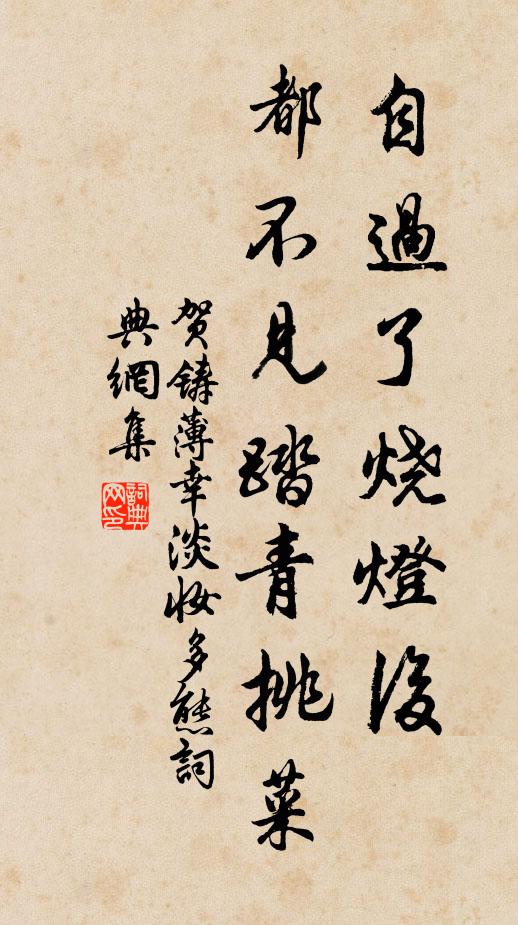 自過了烧燈後
都不見踏青挑菜
贺鑄薄幸淡妆多態詞
典網集
詞典
网印